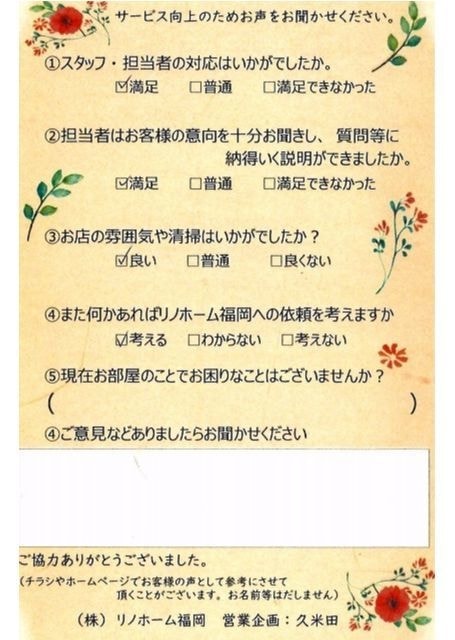 サービス向上のためお声をお聞かせください。
①スタッフ・担当者の対応はいかがでしたか。
☑満足 □普通 □満足できなかった
②担当者はお客様の意向を十分お聞きし、質問等に
納得いく説明ができましたか。
☑満足 □普通 □満足できなかった
③お店の雰囲気や清掃はいかがでしたか?
☑良い □普通 □良くない
④また何かあればリノホーム福岡への依頼を考えますか
☑考える □わからない □考えない
⑤現在お部屋のことでお困りなことはございませんか?
( )
④ご意見などありましたらお聞かせください
ご協力ありがとうございました。
(チラシやホームページでお客様の声として参考にさせて
頂くことがございます。お名前等はだしません)
(株) リノホーム福岡 営業企画:久米田